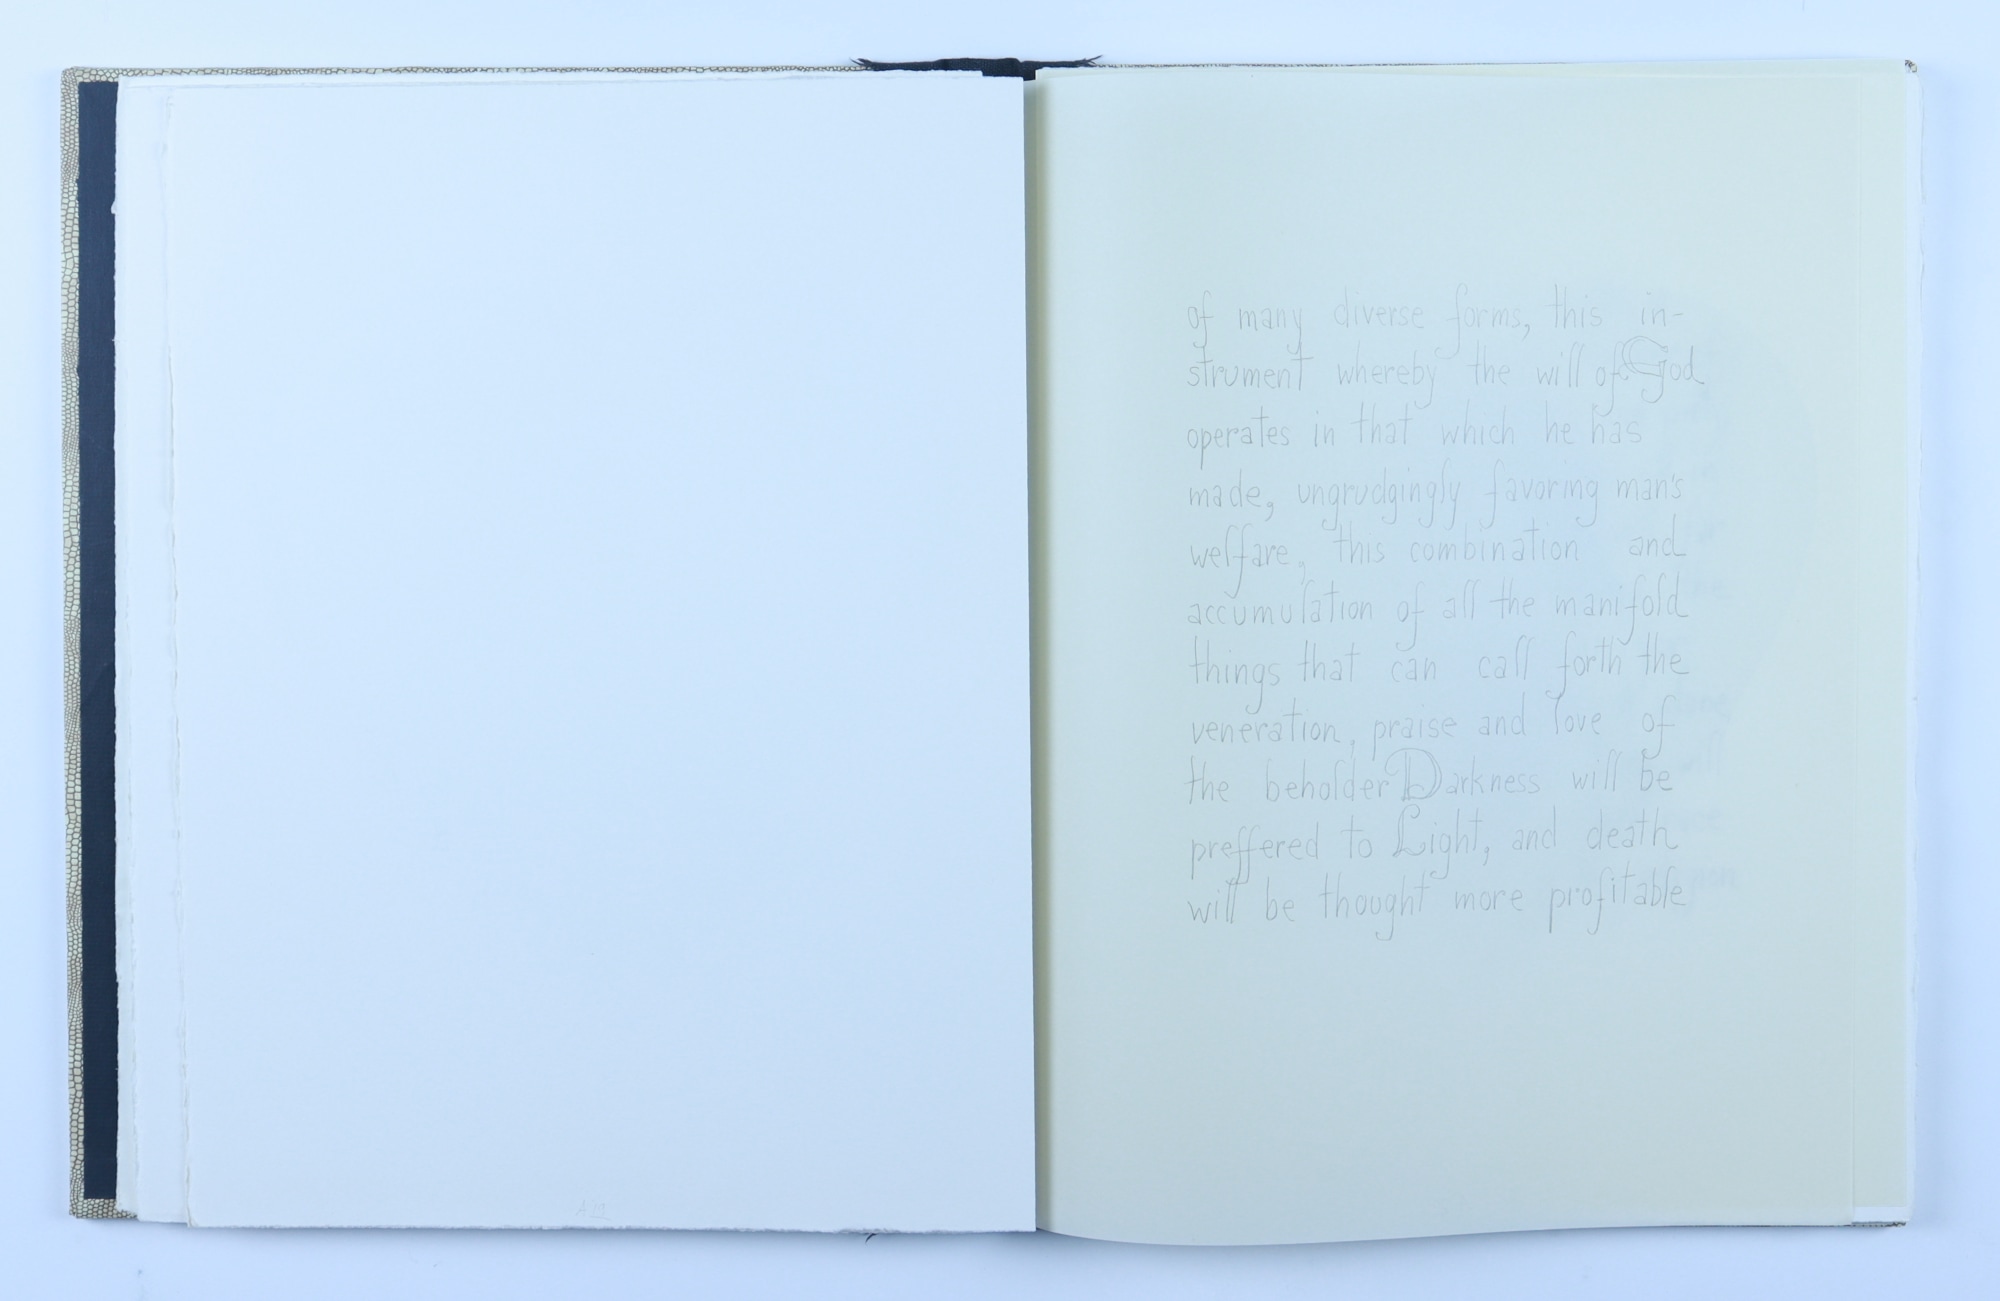 of many diverse forms, this in-
strument whereby the will of God
operates in that which he has
made, ungrudgingly favoring man's
welfare, this combination and
accumulation of all the manifold
things that can call forth the
veneration, praise and love of
the beholder Darkness will be
preffered to Light, and death
will be thought more profitable